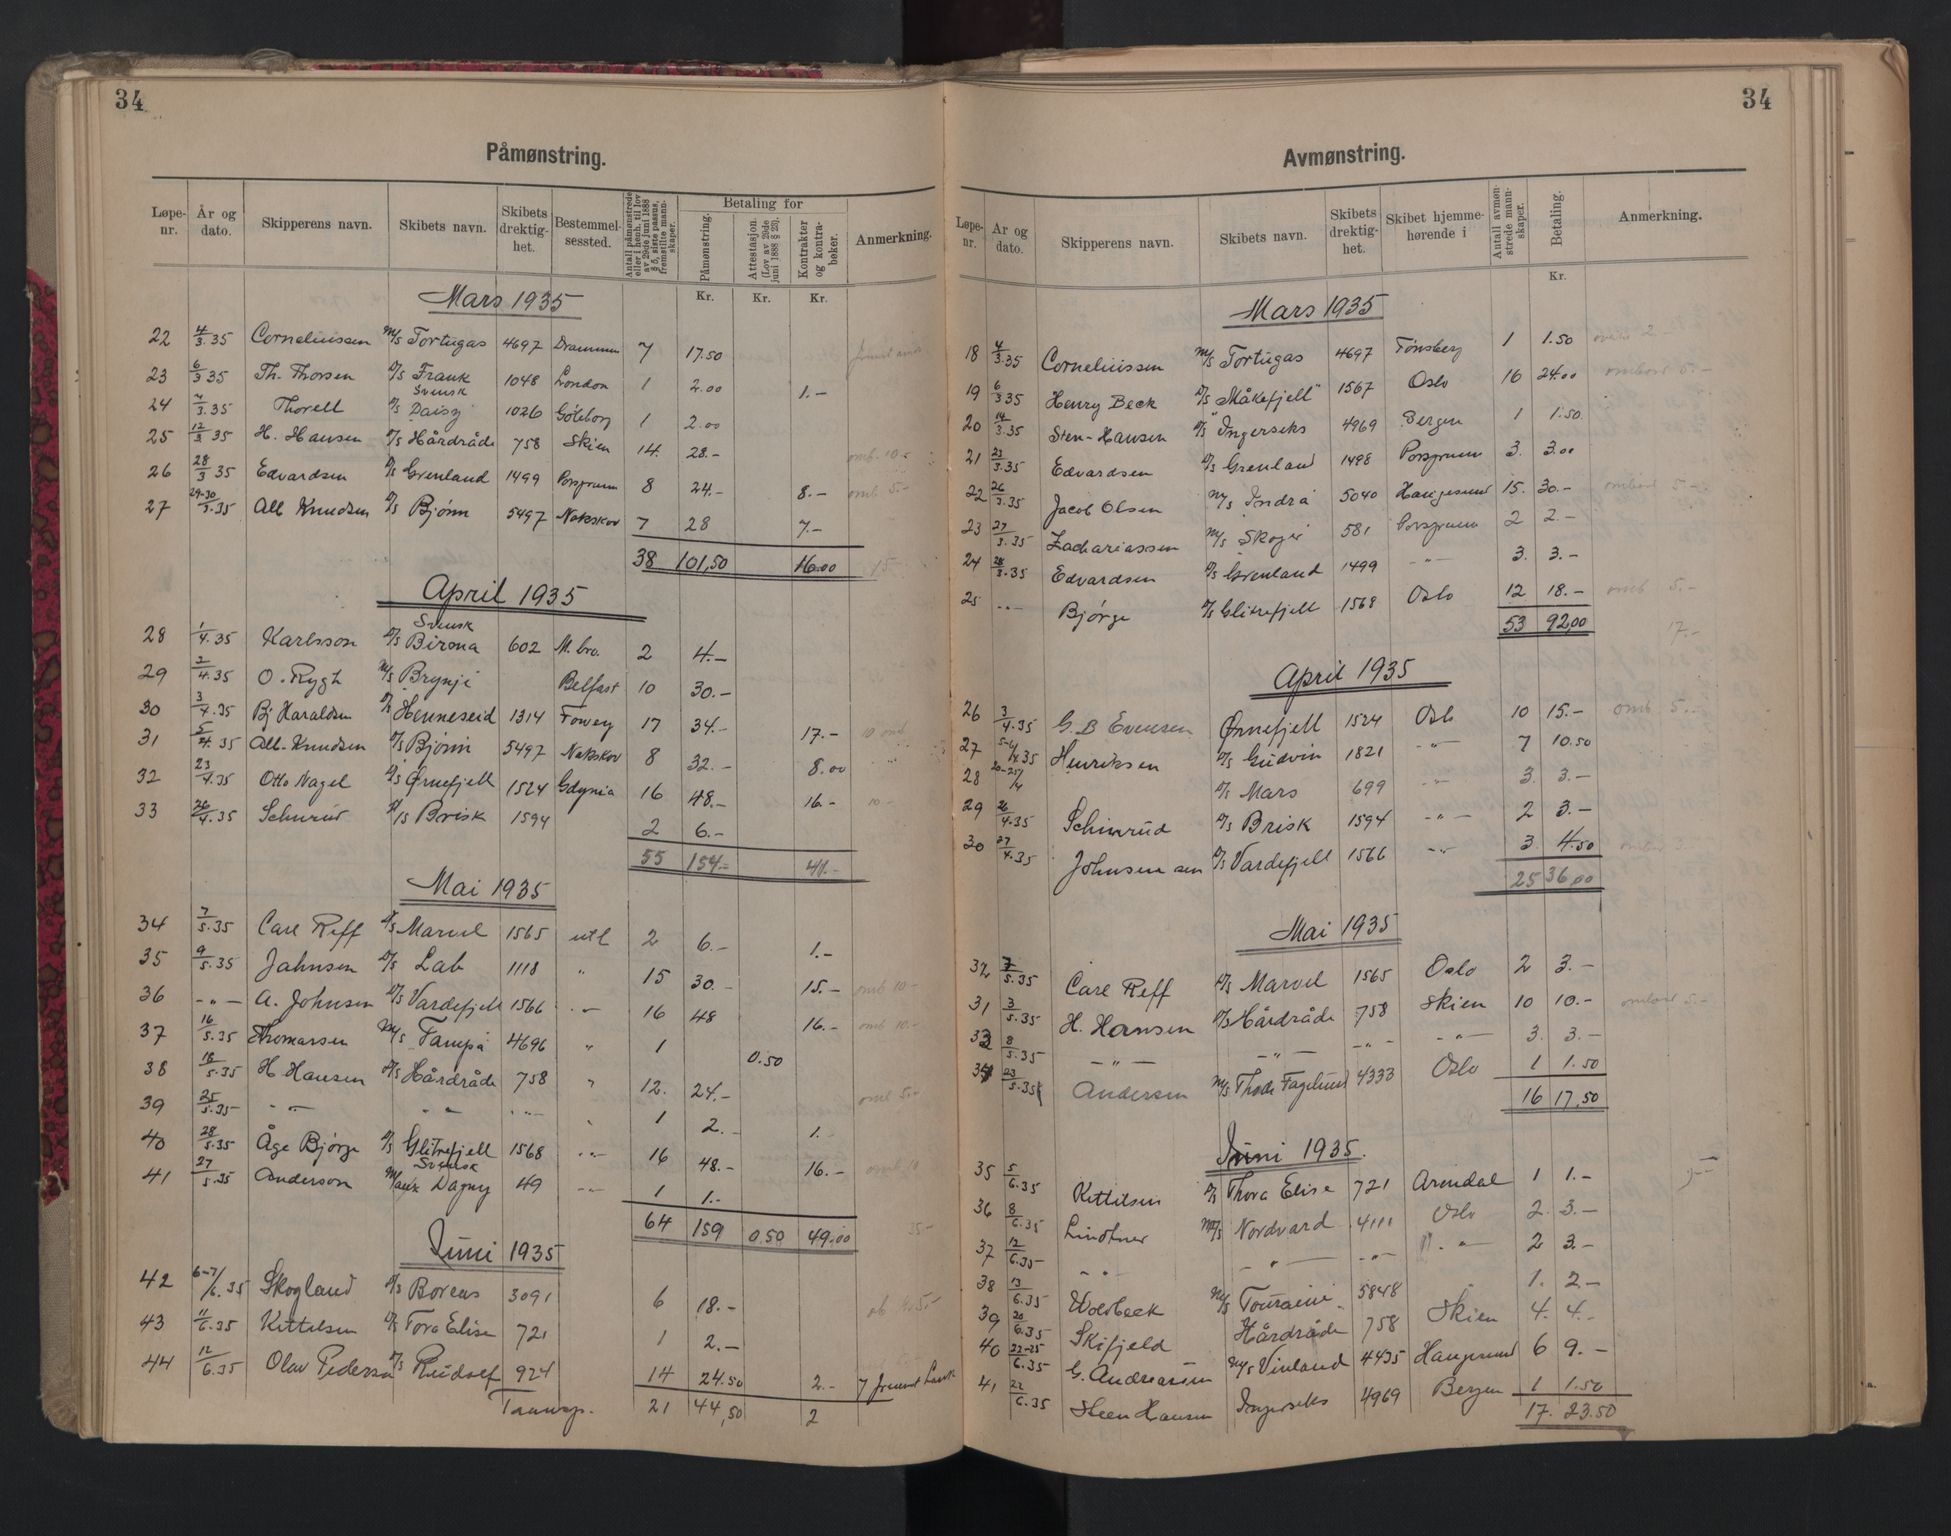 34
Påmønstring.
Løpe-nr. | År og dato. | Skipperens navn. | Skibets navn. | Skibets drektig-het. | Bestemmel-sessted. | Antall påmønstrede eller i henh. til lov av 29de juni 1888 § 5, siste passus, fremstillte mann-skaper. | Betaling for | Påmønstring. | Attestasjon (Lov av 29de juni 1888 § 23). | Kontrakter og kontra-bøker. | Anmerkning.
Kr. Kr. Kr.
Mars 1935
22 4/3.35 Corneliussen M/S Tortugas 4697 Drammen 7 17.50
23 6/3 35 Th. Thorsen D/S Frank 1048 London 1 2.00 1.-
24 7/3.35 Thorell Svensk D/S Daisy 1026 Göteborg 1 2.00
25 12/3 35 H. Hansen D/S Hårdråde 758 Skien 14. 28.- omb. 10.-
26 28/3 35 Edvardsen D/S Grenland 1499 Porsgrunn 8 24.- 8.- omb 5.-
27 29-30/3.35 Alb Knudsen D/S Bjønn 5497 Nakskov 7 28 7.-
38 101,50 16.00 15-
April 1935
28 1/4.35 Karlsson Svensk D/S Birona 602 M.bro. 2 4.-
29 2/4.35 O. Rygh M/S Brynje Belfast 10 30.-
30 3/4.35 Bj Haraldsen D/S Henneseid 1314 Fowey 17 34.- 17.- 10 omb
31 5/4 35 Alb. Knudsen D/S Bjønn 5497 Nakskov 8 32.- 8.00
32 23/4.35 Otto Nagel D/S Ørnefjell 1524 Gdynia 16 48.- 16.- 10-
33 26/4.35 Schinrud D/S Brisk 1594 2 6.-
55 154.= 41.-
Mai 1935
34 7/5.35 Carl Reff D/S Marvel 1565 utl 2 6.- 1.-
35 9/5.35 Jahnsen D/S Lab 1118 " 15 30.- 15.- omb 10-
36 -"- A. Johnsen D/S Vardefjell 1566 -"- 16 48 16.- omb 10.-
37 16/5.35 Thomassen M/S Tampa 4696 " 1 0.50
38 18/5.35 H Hansen D/S Hårdråde 758 " 12. 24.- omb 5.-
39 25/5.35- -"- " " -"- " 1 2.- 1.-
40 28/5.35 Åge Bjørge D/S Glitrefjell 1568 -"- 16 48.- 16.- omb 10
41 27/5.35 Anderson Svensk Dagny 49 -"- 1 1.-
64 159 0.50 49.00 35-
Juni 1935
42 6-7/6.35 Skogland D/S Boreas 3091 6 18.-
43 11/6.35 Kittilsen D/S Tora Elise 721 1 2.-
44 12/6.35 Olav Pedersen D/S Rudolf 924 14 24.50 2.-
Transp. 21 44,50 2
34
Avmønstring.
Løpe-nr. | År og dato. | Skipperens navn. | Skibets navn. | Skibets drektig-het. | Skibet hjemme-hørende i | Antall avmøn-strede mann-skaper. | Betaling. | Anmerkning.
Kr.
Mars 1935
18 4/3.35 Corneliussen M/S Tortugas 4697 Tønsberg 1 1.50
19 6/3 35 Henry Beck D/S "Måkefjell" 1567 Oslo 16 24.00 ombord 5.-
20 14/3.35 Sten-Hansen D/S "Ingerseks 4969 Bergen 1 1.50
21 23/3.35 Edvardsen D/S Grenland 1498 Porsgrunn 3. 3.00
22 26/3.35 Jacob Olsen M/S Indra 5040 Haugesund 15. 30.- ombord 5.-
23 27/3.35 Zachariassen M/S Skoger 581 Porsgrunn 2 2.-
24 28/3.35 Edvardsen D/S Grenland 1499 -"- 3. 3.-
25 -"- Bjørge D/S Glitrefjell 1568 Oslo 12 18.- omb 5.-
53 92,00 17.-
April 1935
26 3/4.35 G. B Evensen Ørnefjell 1524 Oslo 10 15.- omb. 5.-
27 5-4/4.35 Henriksen D/S Gudvin 1821 -"- 7 10.50
28 20-25/4 D/S Mars 699 -"- 3. 3.-
29 26/4.35 Schinrud D/S Brisk 1594 -"- 2 3.-
30 27/4.35 Johnsen sen D/S Vardefjell 1566 -"- 3. 4.50
25 36,00
Mai 1935
32 7/5.35 Carl Reff D/S Marvel 1565 Oslo 2 3.-
31 3/5.35 H. Hansen D/S Hårdråde 758 Skien 10 10.- ombord 5.-
33 8/5.35 -"- -"- -"- -"- 3. 3.-
34 23/5.35 Andersen M/S Thode Fagelund 4333 Oslo 1 1.50
16 17,50
Juni 1935.
35 5/6.35 Kittilsen D/S Thora Elise 721 Arendal 1 1.-
36 8/6.35 Lindtner M/S Nordvard 4111 Oslo 2. 3.-
37 12/6.35- " " -"- -"- "-"- 2 3.-
38 13/6.35 Wolbeck M/S Touraine 5848 1. 2-
39 20/6.35 Skifjeld Hårdråde 758 Skien 4. 4.-
40 22-25/6.35 G. Andreassen M/S Vinland 4435 Haugesund 6 9.-
41 22/6.35 Steen Hansen Ingerseks 4969 Bergen 1 1.50
17. 23.50